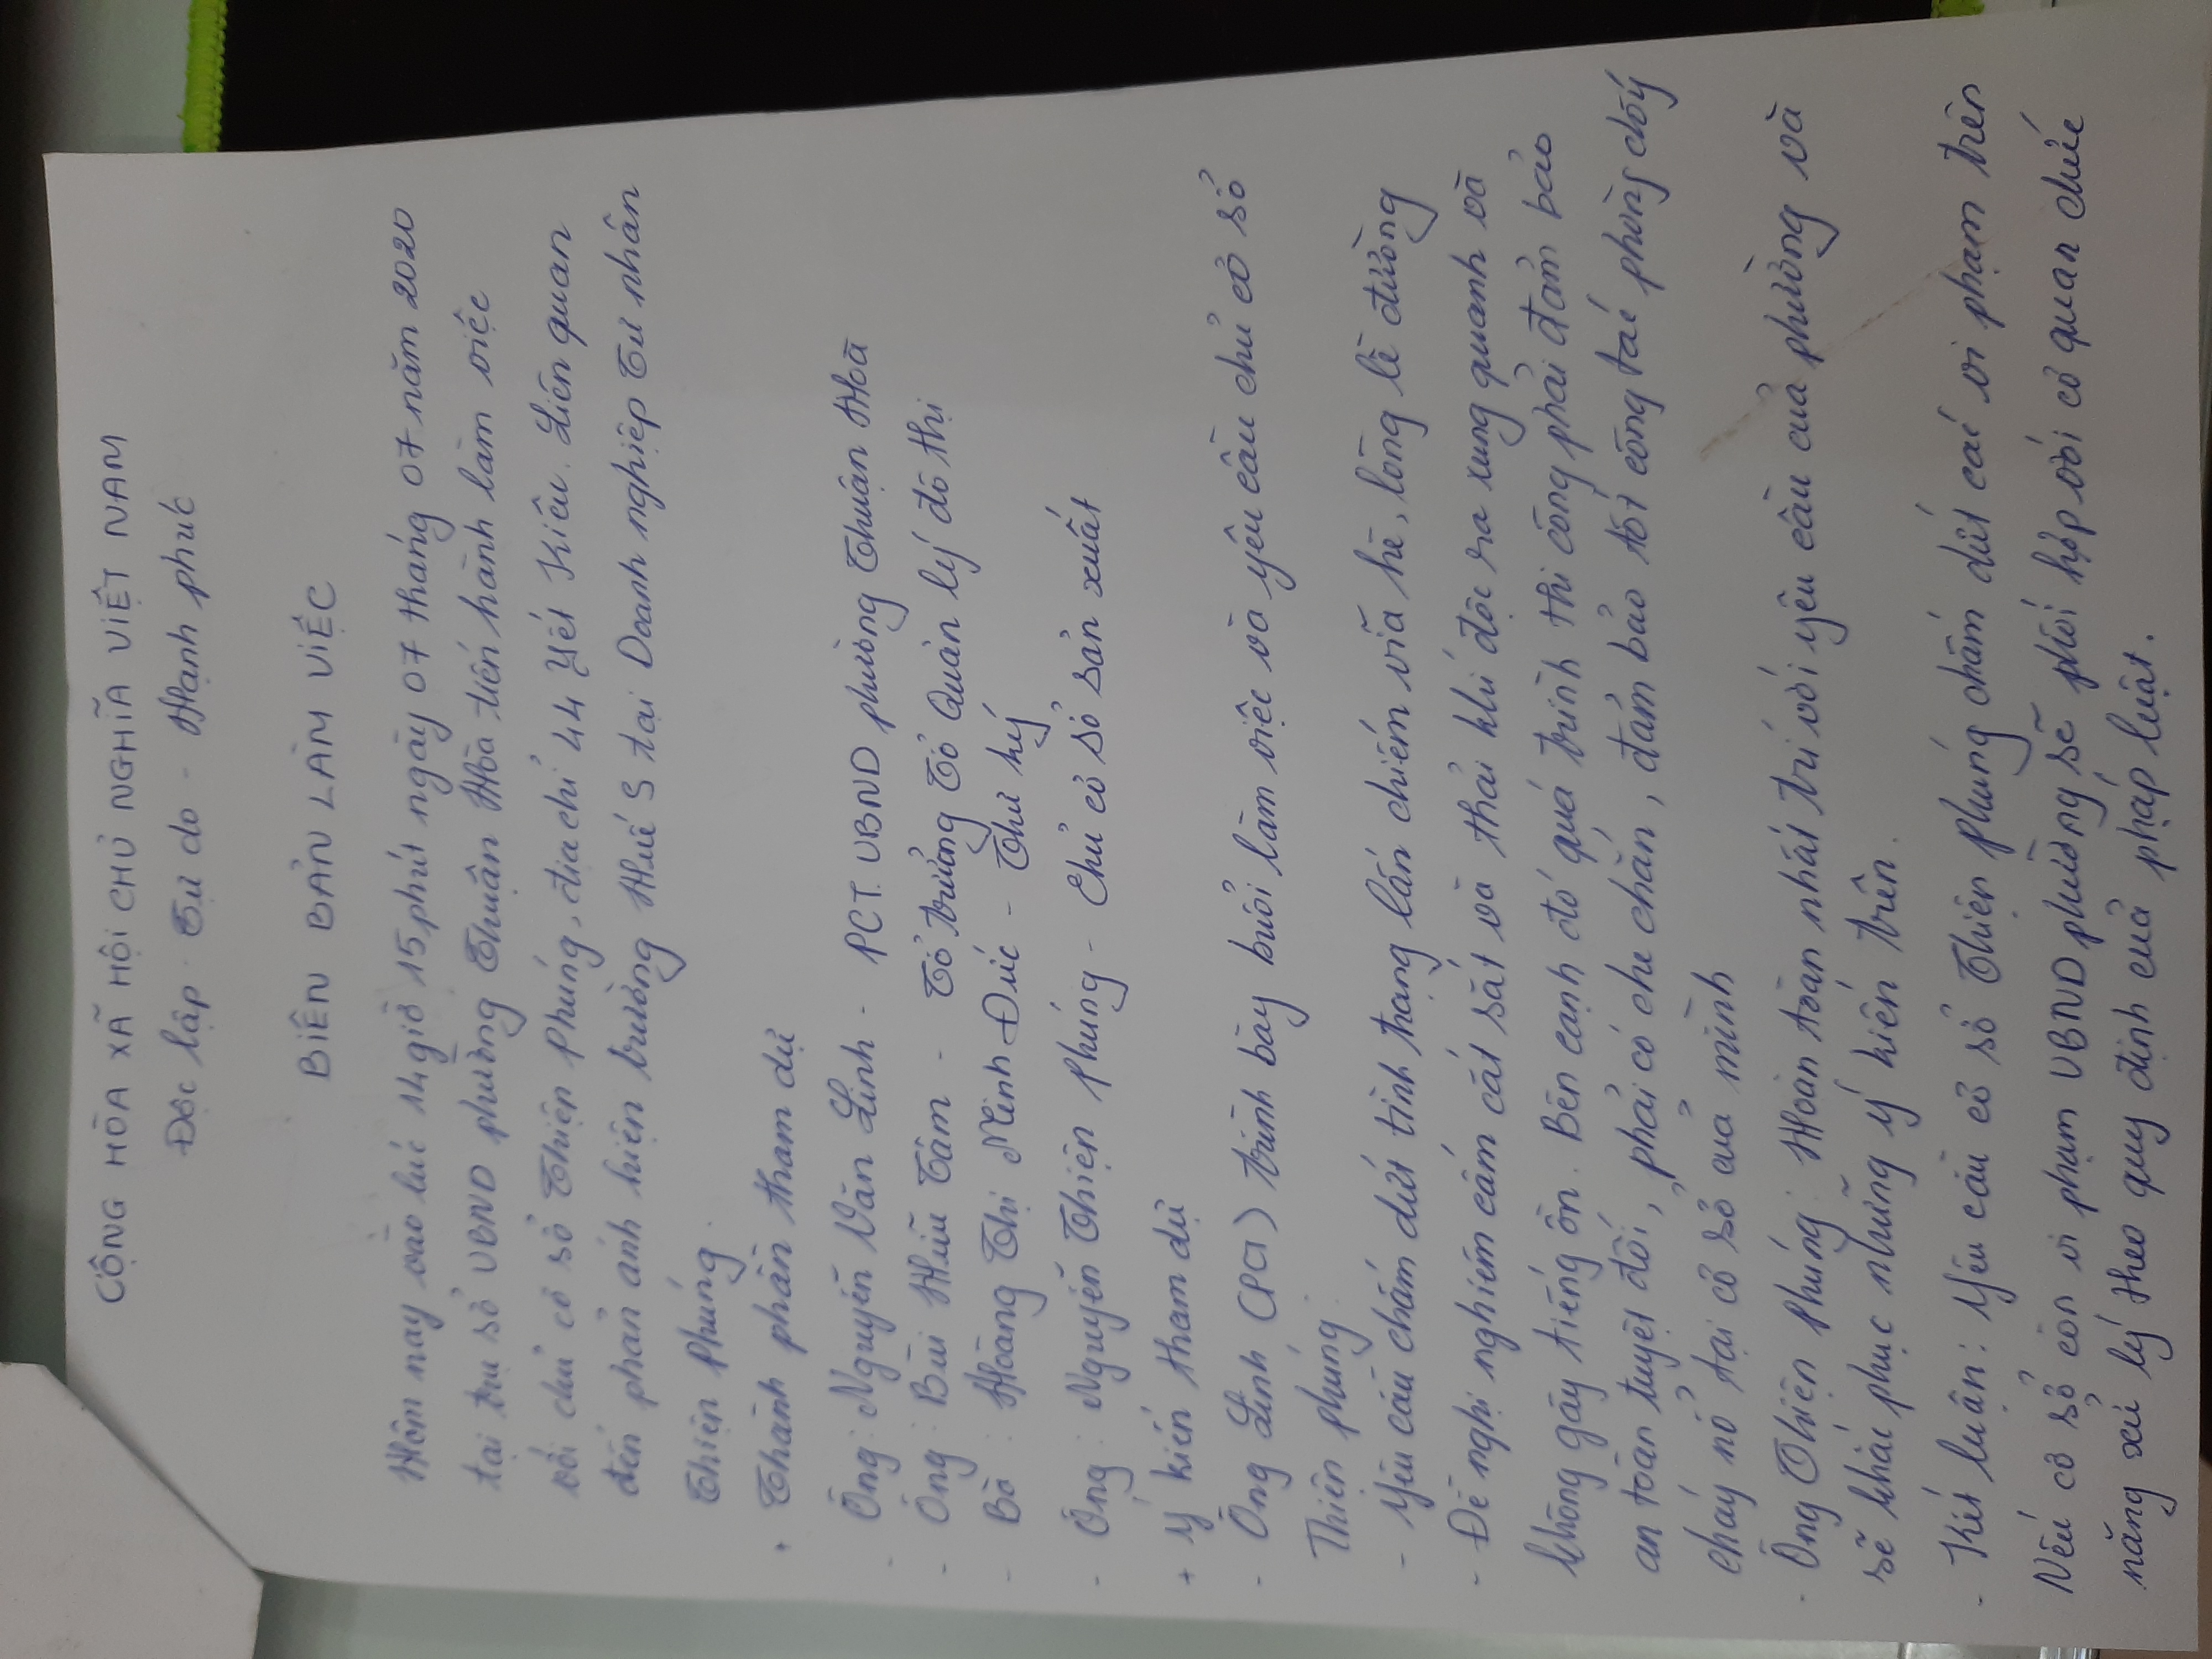 CỘNG HÒA XÃ HỘI CHỦ NGHĨA VIỆT NAM
Độc lập - Tự do - Hạnh phúc
BIÊN BẢN LÀM VIỆC
Hôm nay vào lúc 14 giờ 15 phút ngày 07 tháng 07 năm 2020
tại trụ sở UBND phường Thuận Hòa tiến hành làm việc
với chủ cơ sở Thiện Phúng, địa chỉ 44 Yết Kiêu. Liên quan
đến phản ánh hiện trường Huế S tại Doanh nghiệp Tư nhân
Thiện Phúng.
+ Thành phần tham dự
- Ông: Nguyễn Văn Linh - PCT. UBND phường Thuận Hòa
- Ông: Bùi Hữu Tâm - Tổ trưởng Tổ Quản lý đô thị
- Bà: Hoàng Thị Minh Đức - Thư ký
- Ông: Nguyễn Thiện Phúng - Chủ cơ sở sản xuất
+ Ý kiến tham dự
- Ông Linh (PCT) trình bày buổi làm việc và yêu cầu chủ cơ sở
Thiện Phúng.
- Yêu cầu chấm dứt tình trạng lấn chiếm vỉa hè, lòng lề đường
- Đề nghị nghiêm cấm cắt sắt và thải khí độc ra xung quanh và
không gây tiếng ồn. Bên cạnh đó quá trình thi công phải đảm bảo
an toàn tuyệt đối, phải có che chắn, đảm bảo tốt công tác phòng cháy
cháy nổ tại cơ sở của mình
- Ông Thiện Phúng: Hoàn toàn nhất trí với yêu cầu của phường và
sẽ khắc phục những ý kiến trên.
- Kết luận: Yêu cầu cơ sở Thiện Phúng chấm dứt các vi phạm trên
Nếu cơ sở còn vi phạm UBND phường sẽ phối hợp với cơ quan chức
năng xử lý theo quy định của pháp luật.